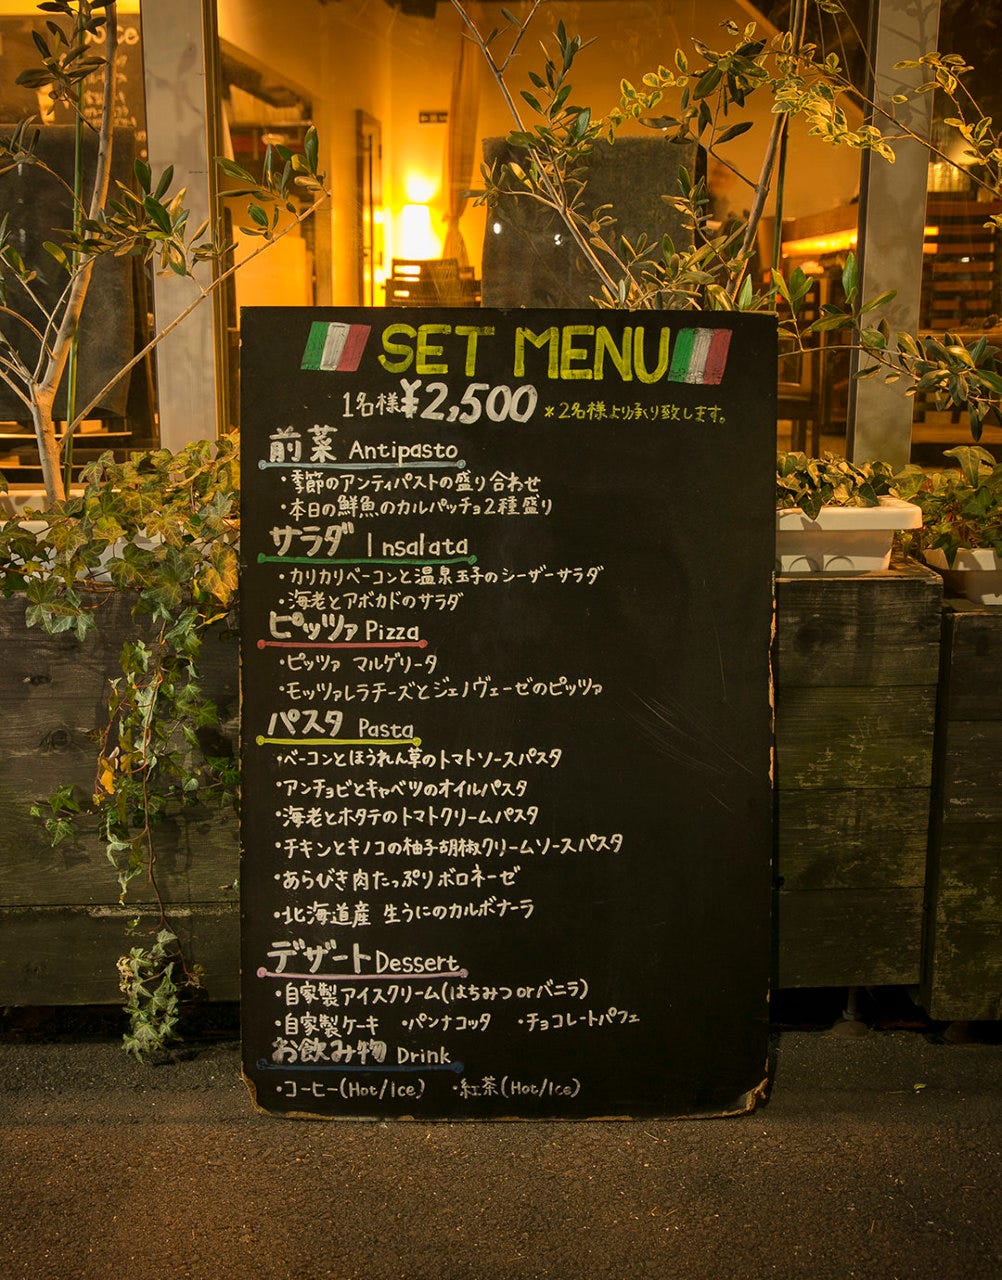 SET MENU
1名様¥2,500 *2名様より承り致します。
前菜 Antipasto
・季節のアンティパストの盛り合わせ
・本日の鮮魚のカルパッチョ2種盛り
サラダ Insalata
・カリカリベーコンと温泉玉子のシーザーサラダ
・海老とアボカドのサラダ
ピッツァ Pizza
・ピッツァ マルゲリータ
・モッツァレラチーズとジェノヴェーゼのピッツァ
パスタ Pasta
・ベーコンとほうれん草のトマトソースパスタ
・アンチョビとキャベツのオイルパスタ
・海老とホタテのトマトクリームパスタ
・チキンとキノコの柚子胡椒クリームソースパスタ
・あらびき肉たっぷりボロネーゼ
・北海道産 生うにのカルボナーラ
デザート Dessert
・自家製アイスクリーム(はちみつorバニラ)
・自家製ケーキ ・パンナコッタ ・チョコレートパフェ
お飲み物 Drink
・コーヒー(Hot/Ice) ・紅茶(Hot/Ice)